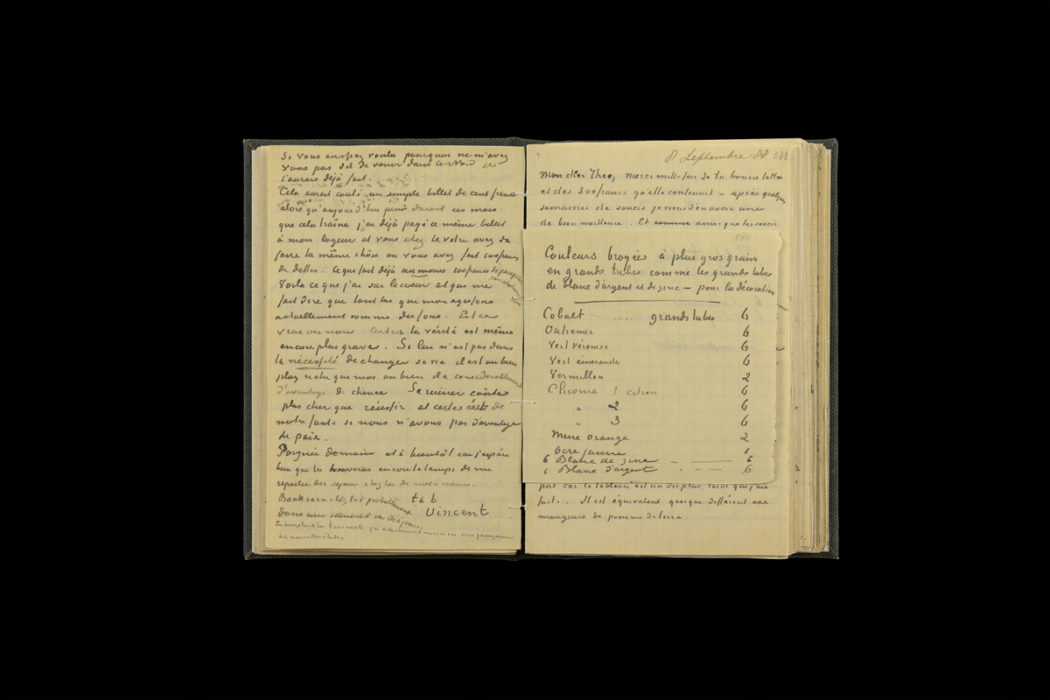 Si vous eussiez voulu pourquoi ne m'avez
vous pas dit de venir dans le nord je
l'aurais déjà fait.
Cela aurait coûté un simple billet de cent francs
alors qu'aujourd'hui pend durant ces mois
que cela traîne j'ai déjà payé ce même billet
à mon logeur et vous chez le votre avez du
faire la même chôse ou vous avez fait 100 francs
de dettes. Ce qui fait déjà au moins 100 francs de
Voilà ce que j'ai sur le coeur et qui me
fait dire que tant lui que moi agissons
actuellement comme des fous. Est ce
vrai ou non certes la vérité est même
encore plus grave. Si lui n'est pas dans
la nécessité de changer sa vie il est ou bien
plus riche que moi ou bien il a considerablement
d'avantage de chance Se ruiner coûte
plus cher que réussir et certes c'est de
notre faute si nous n'avons pas d'avantage
de paix.
Poignée de main et à bientôt car j'espère
bien que tu trouveras encore le temps de me
t à b
Vincent
8 Septembre 88 533
Mon cher Theo, merci mille fois de ta bonne lettre
et des 300 francs qu'elle contenait – après quelques
semaines de soucis je viens d'en avoir une
de bien meilleure. Et comme ainsi que les soucis
Couleurs broyées à plus gros grain
en grands tubes comme les grands tubes
de blanc d'argent et de zinc – pour la décoration
Cobalt grands tubes 6
Outremer 6
Vert véronèse 6
Vert émeraude 6
Vermillon 2
Chrome 1 citron 6
" 2 6
" 3 6
Mine orange 2
Ocre jaune 1
6 Blanc de zinc – — 6
6 Blanc d'argent – – – 6
pas car le tableau est un des plus laids que j'aie
faits. Il est équivalent quoique différent aux
mangeurs de pomme de terre.